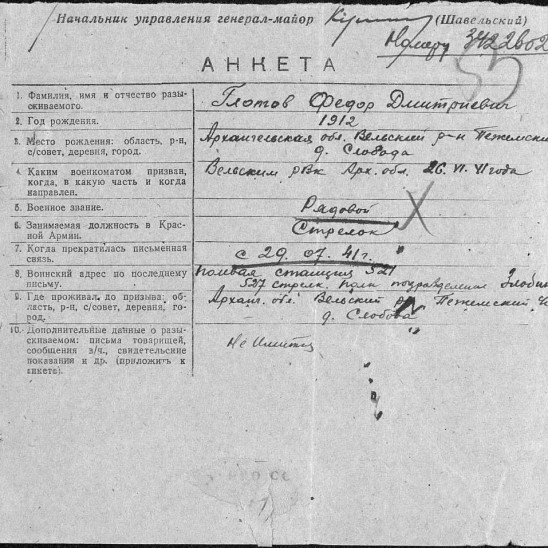 Начальник управления генерал-майор (Шавельский)
Номеру
АНКЕТА
1. Фамилия, имя и отчество разы-
скиваемого.
Глотов Федор Дмитриевич
2. Год рождения.
1912
3. Место рождения: область, р-н,
с/совет, деревня, город.
Архангельская обл. Вельский р-н Пежемский
д. Слобода
4. Каким военкоматом призван,
когда, в какую часть и когда
направлен.
Вельским рвк Арх. обл. 26. VI. 41 года
5. Военное звание.
Рядовой
6. Занимаемая должность в Крас-
ной Армии.
Стрелок
7. Когда прекратилась письменная
связь.
с 29. 07. 41 г.
8. Воинский адрес по последнему
письму.
полевая станция 521
527 стрелк. полк подразделение
9. Где проживал до призыва, об-
ласть, р-н, с/совет, деревня, го-
род.
Архан. обл. Вельский р-н Пежемский
д. Слобода
10. Дополнительные данные о разы-
скиваемом: письма товарищей,
сообщения з/ч., свидетельские
показания и др. (приложить к
анкете).
Не имитц